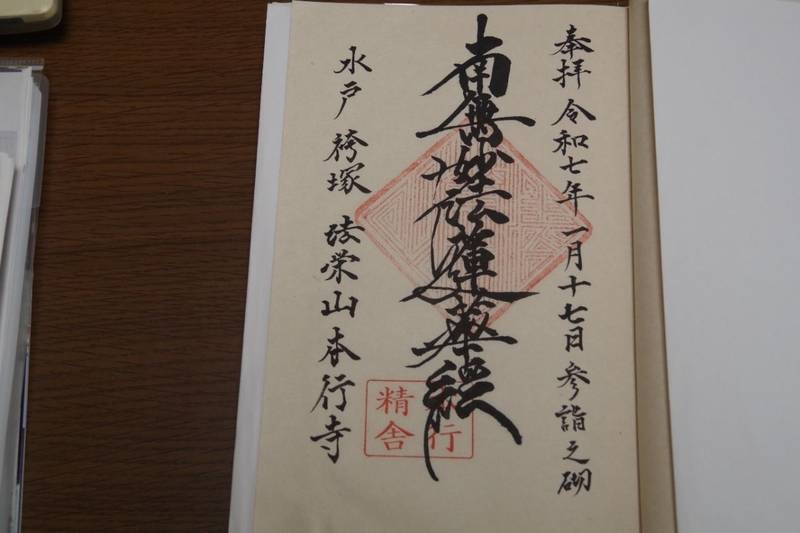 奉拝 令和七年一月十七日 参詣之砌
南無妙法蓮華経
水戸 袴塚 法栄山本行寺
行
精舎